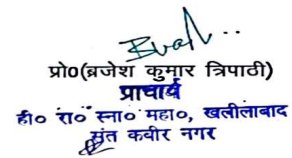 प्रो०(ब्रजेश कुमार त्रिपाठी)
प्राचार्य
ही० रा० स्ना० महा०, खलीलाबाद
संत कबीर नगर